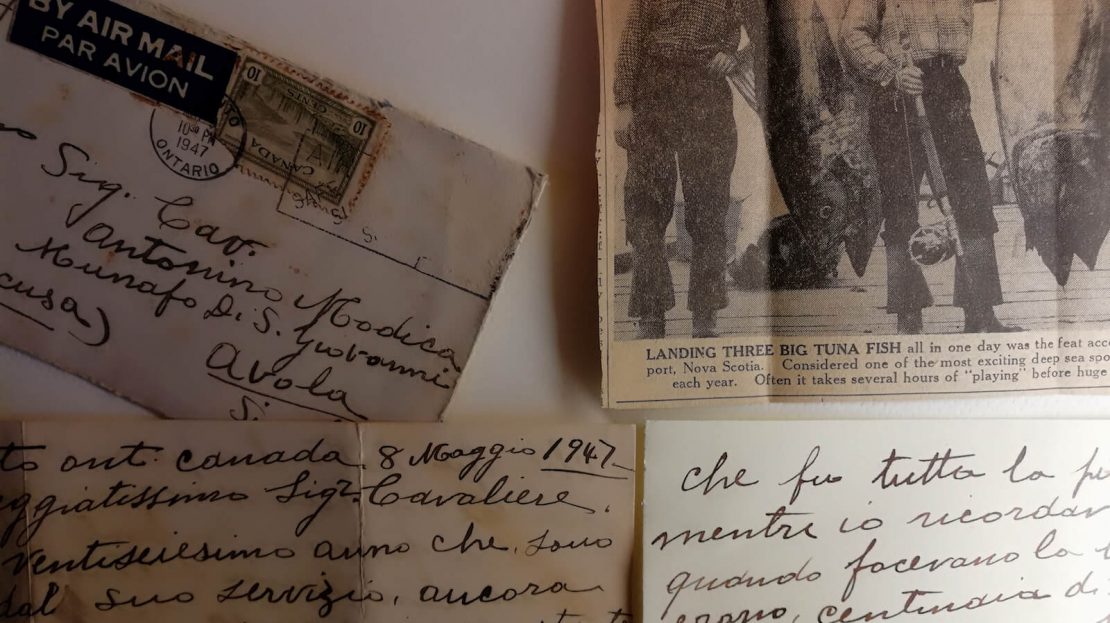 BY AIR MAIL
PAR AVION
10 CENTS 10
CANADA
10 30 PM
1947
ONTARIO
Sig. Cav.
Antonino Modica
Munafo Di S. Giovanni
Avola
cusa)
LANDING THREE BIG TUNA FISH all in one day was the feat acc
port, Nova Scotia. Considered one of the most exciting deep sea spo
each year. Often it takes several hours of "playing" before huge
to ont. canada 8 Maggio 1947
eggiatissimo Sigr. Cavaliere,
ventiseiesimo anno che, sono
dal suo servizio, ancora
che fu tutta la
mentre io ricordav
quando facevano la
erano, centinaia di